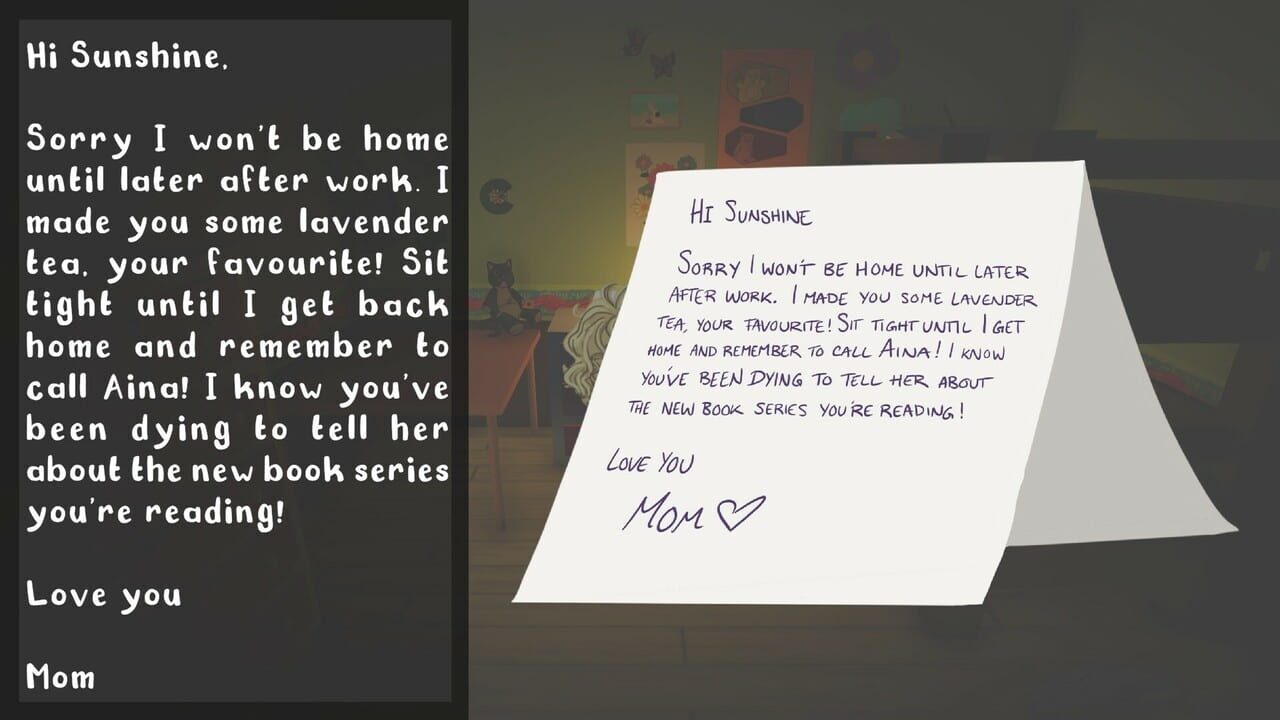 Hi Sunshine,
Sorry I won't be home
until later after work. I
made you some lavender
tea, your favourite! Sit
tight until I get back
home and remember to
call Aina! I know you've
been dying to tell her
about the new book series
you're reading!
Love you
Mom
Hi Sunshine
Sorry I won't be home until later
after work. I made you some lavender
tea, your favourite! Sit tight until I get
home and remember to call Aina! I know
you've been dying to tell her about
the new book series you're reading!
Love you
Mom